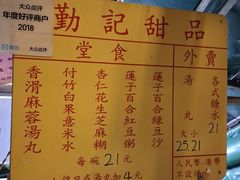 大众点评
年度好评商户
2018
勤記甜品
堂食
外賣
香滑麻蓉湯丸
付竹白果意米水
杏仁花生芝麻糊
蓮子百合紅豆沙
蓮子百合綠豆沙
湯丸
大小
25.21
各式糖水
21
每碗21元
加4元
人民幣.港幣